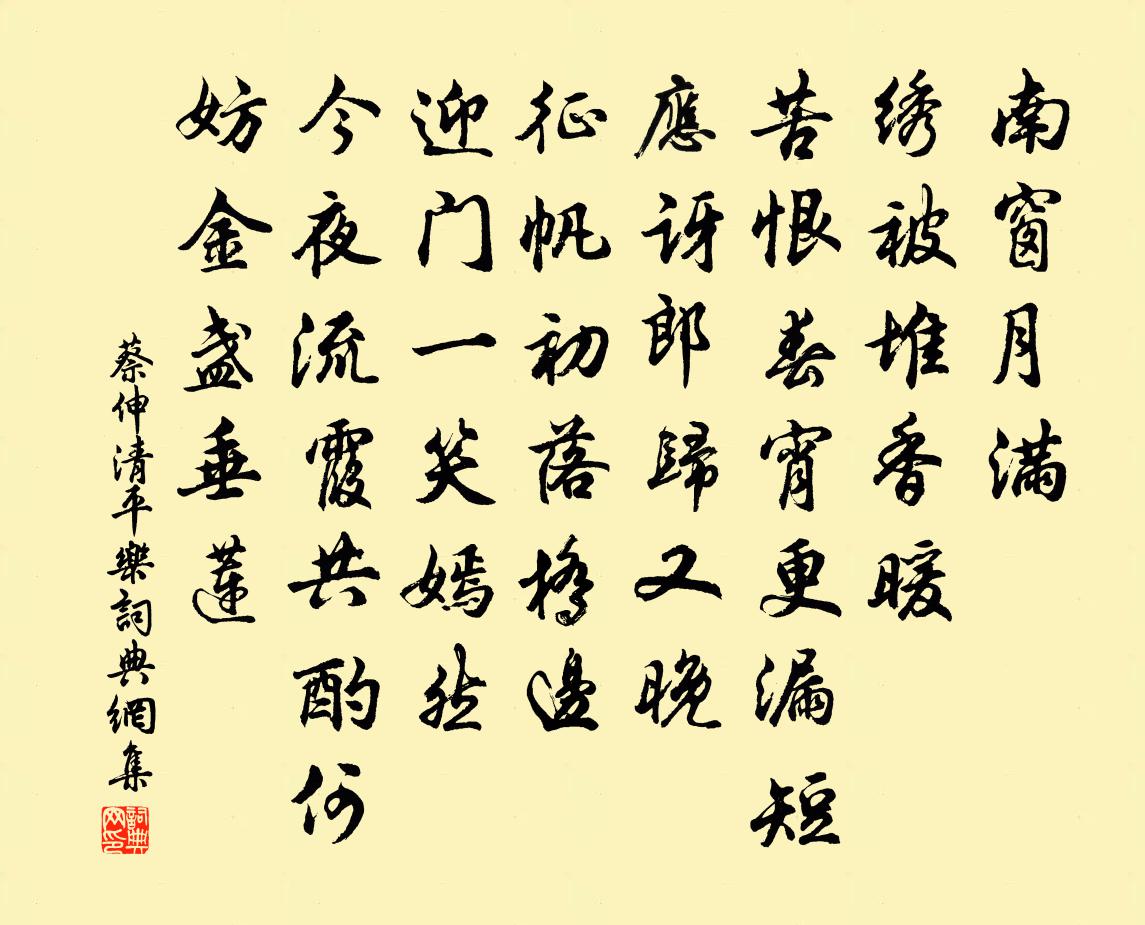 南窗月满
绣被堆香暖
苦恨春宵更漏短
應讶郎歸又晚
征帆初落橋邊
迎门一笑嫣然
今夜流霞共酌何
妨金盏垂蓮
蔡伸清平樂詞典網集
詞典网印